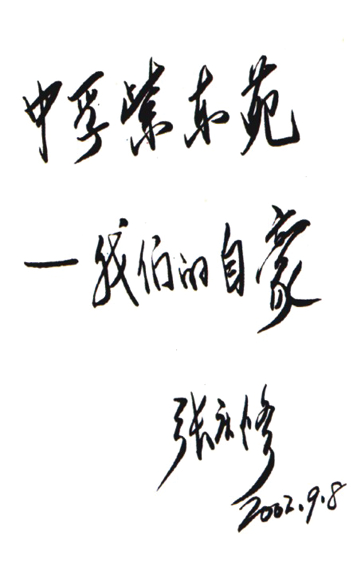 中孚紫东苑
—我们的自豪
张永修
2002.9.8